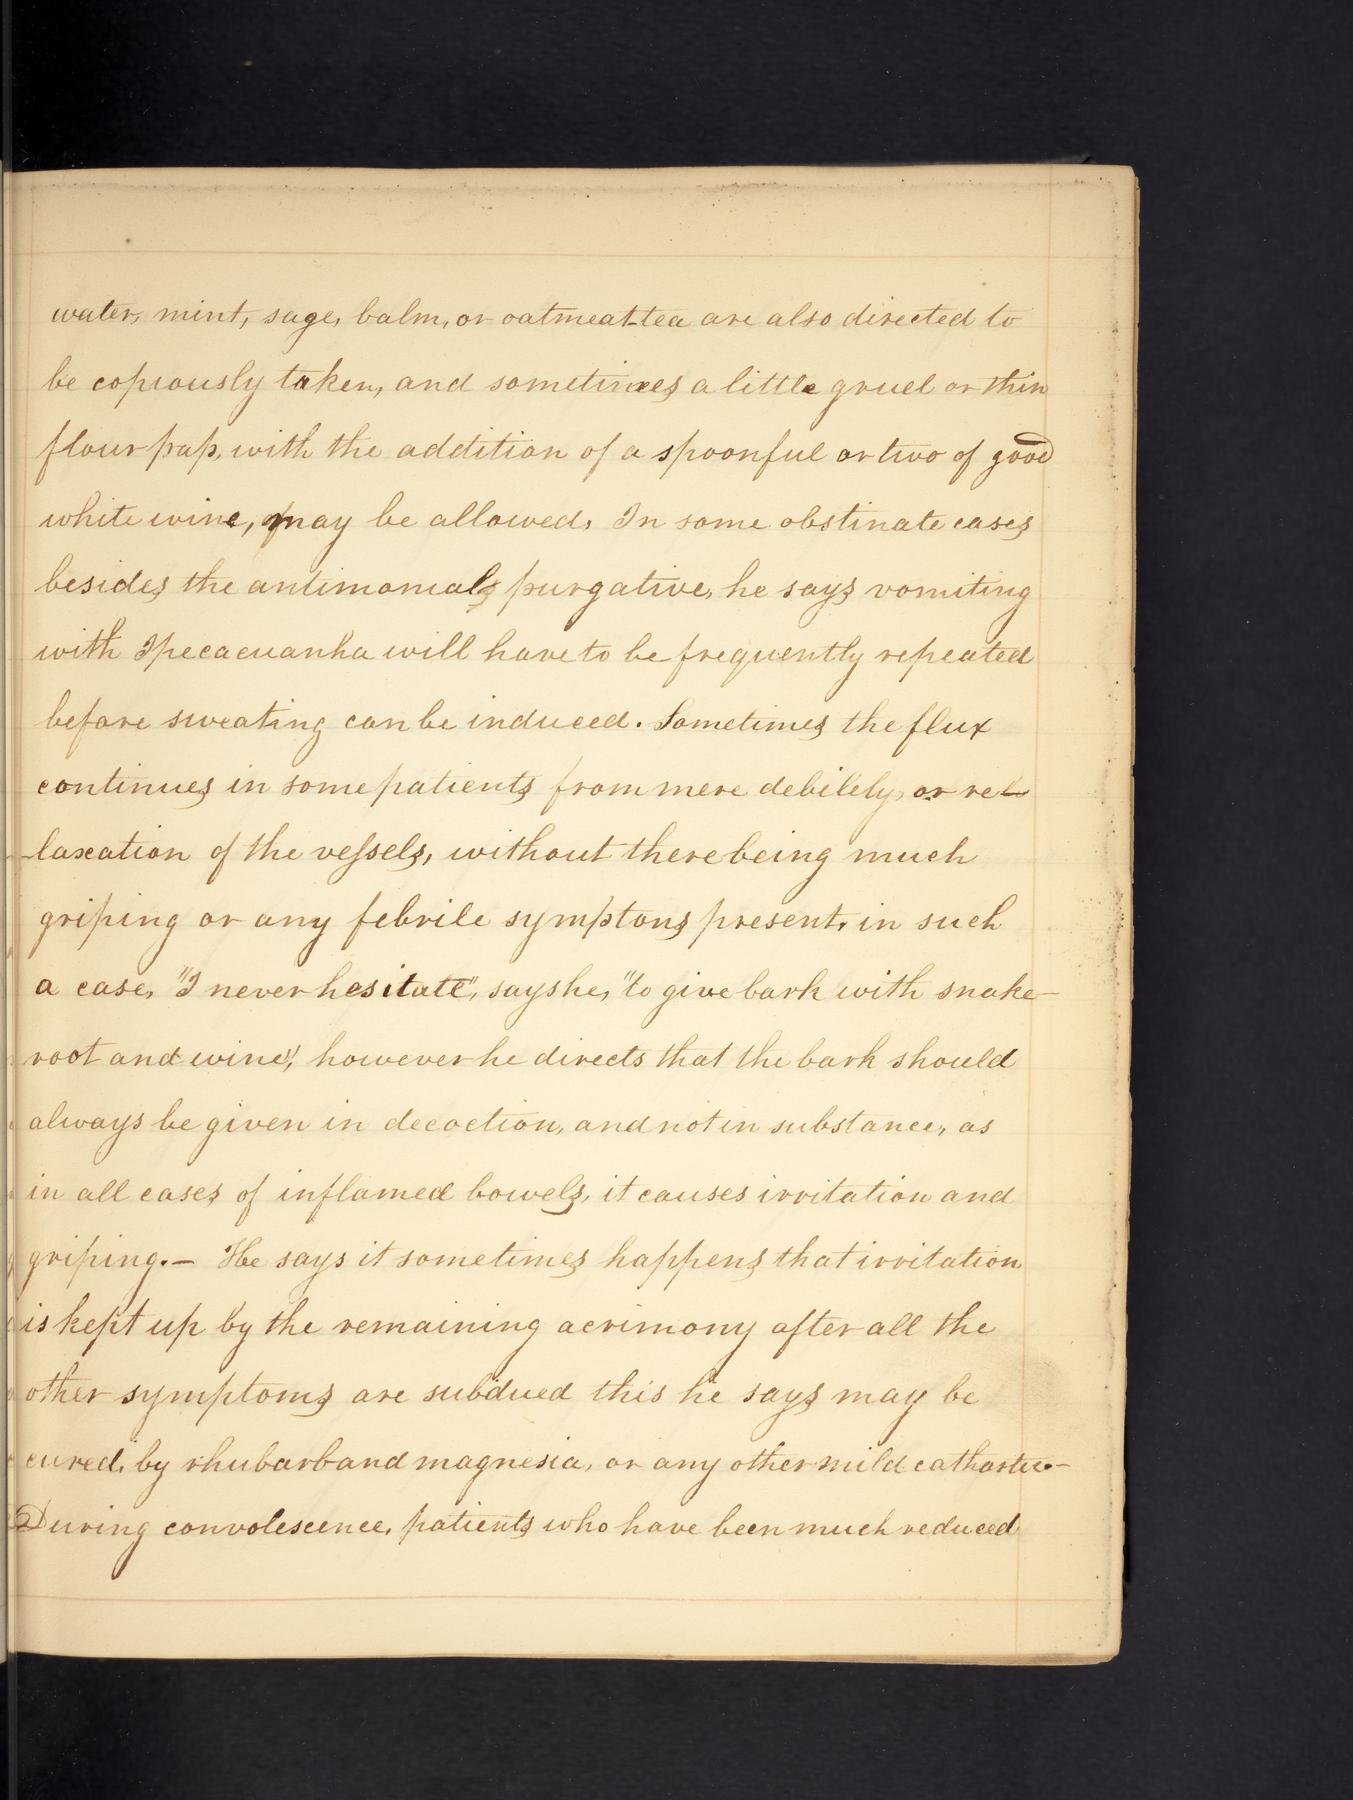 water, mint, sage, balm, or oatmeat-tea are also directed to
be copiously taken, and sometimes a little gruel or thin
flour pap, with the addition of a spoonful or two of good
white wine, may be allowed. In some obstinate cases
besides the antimonials purgative, he says vomiting
with Ipecacuanha will have to be frequently repeated
before sweating can be induced. Sometimes the flux
continues in some patients from mere debilety, or re-
-laxation of the vessels, without there being much
griping or any febrile symptons present, in such
a case, "I never hesitate", says he, "to give bark with snake-
root and wine", however he directs that the bark should
always be given in decoction, and not in substance, as
in all cases of inflamed bowels, it causes irritation and
griping.- He says it sometimes happens that irritation
is kept up by the remaining acrimony after all the
other symptoms are subdued this he says may be
cured, by rhubarb and magnesia, or any other mild cathartic.-
During convolescence, patients who have been much reduced